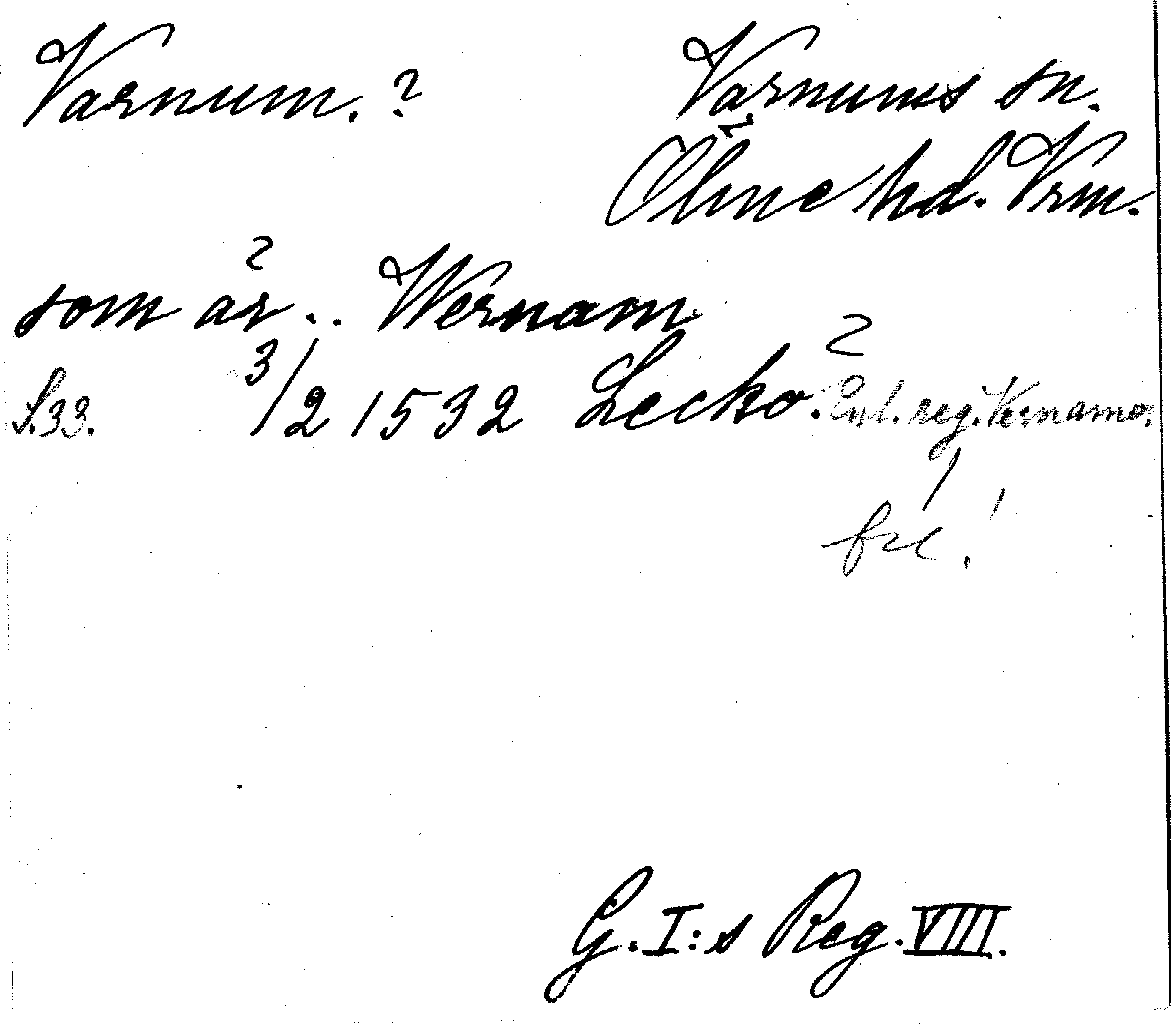 Varnum. ?
Varnums sn.
Ölme hd. Vrm.
som är .. Wernam
S. 33. 3/2 1532 Lecko. ? Enl. reg. Vernamo.
G. I:s Reg. VIII.